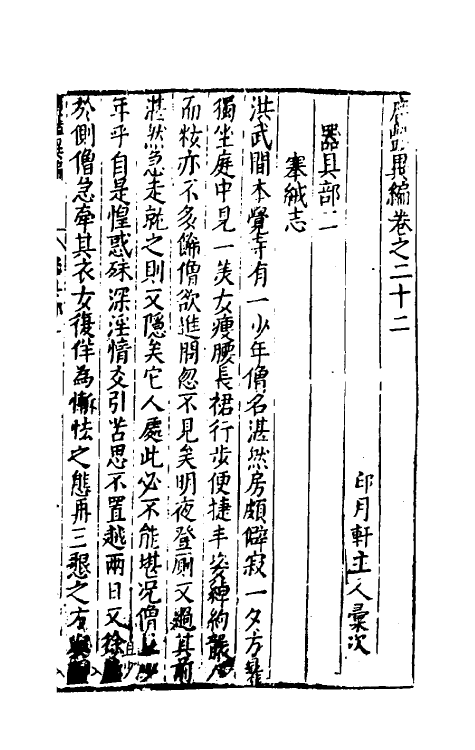 廣艷異編卷之二十二
印月軒主人彙次
器具部二
塞絨志
洪武間本覺寺有一少年僧名湛然房頗僻寂一夕方
獨坐庭中見一美女瘦腰長裙行步便捷丰姿綽約
而粧亦不多飾僧欲進問忽不見矣明夜登厠又過其前
湛然急走就之則又隱矣它人處此必不能堪況僧
年乎自是惶惑殊深淫情交引苦思不置越兩日又徐
於側僧急牽其衣女復佯為慚怯之態再三懇之方與